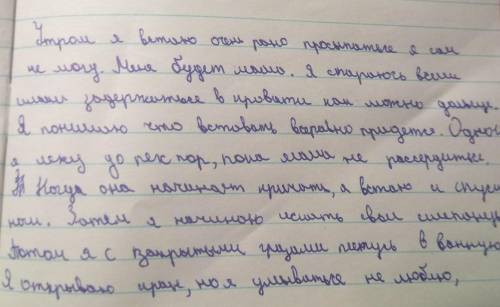 Утром я встаю очень рано просыпаться я сам
не могу. Меня будет мама. Я стараюсь всеми
силами задержаться в кровати как можно дальше.
Я понимаю что вставать всеравно придется. Однок
я лежу до тех пор, пока мама не рассердитса.
Когда она начинает кричать, я встаю и
ноги. Затем я начинаю искать свои
Потом я с закрытыми глазами в ванную
Я открываю кран, но я умываться не люблю,